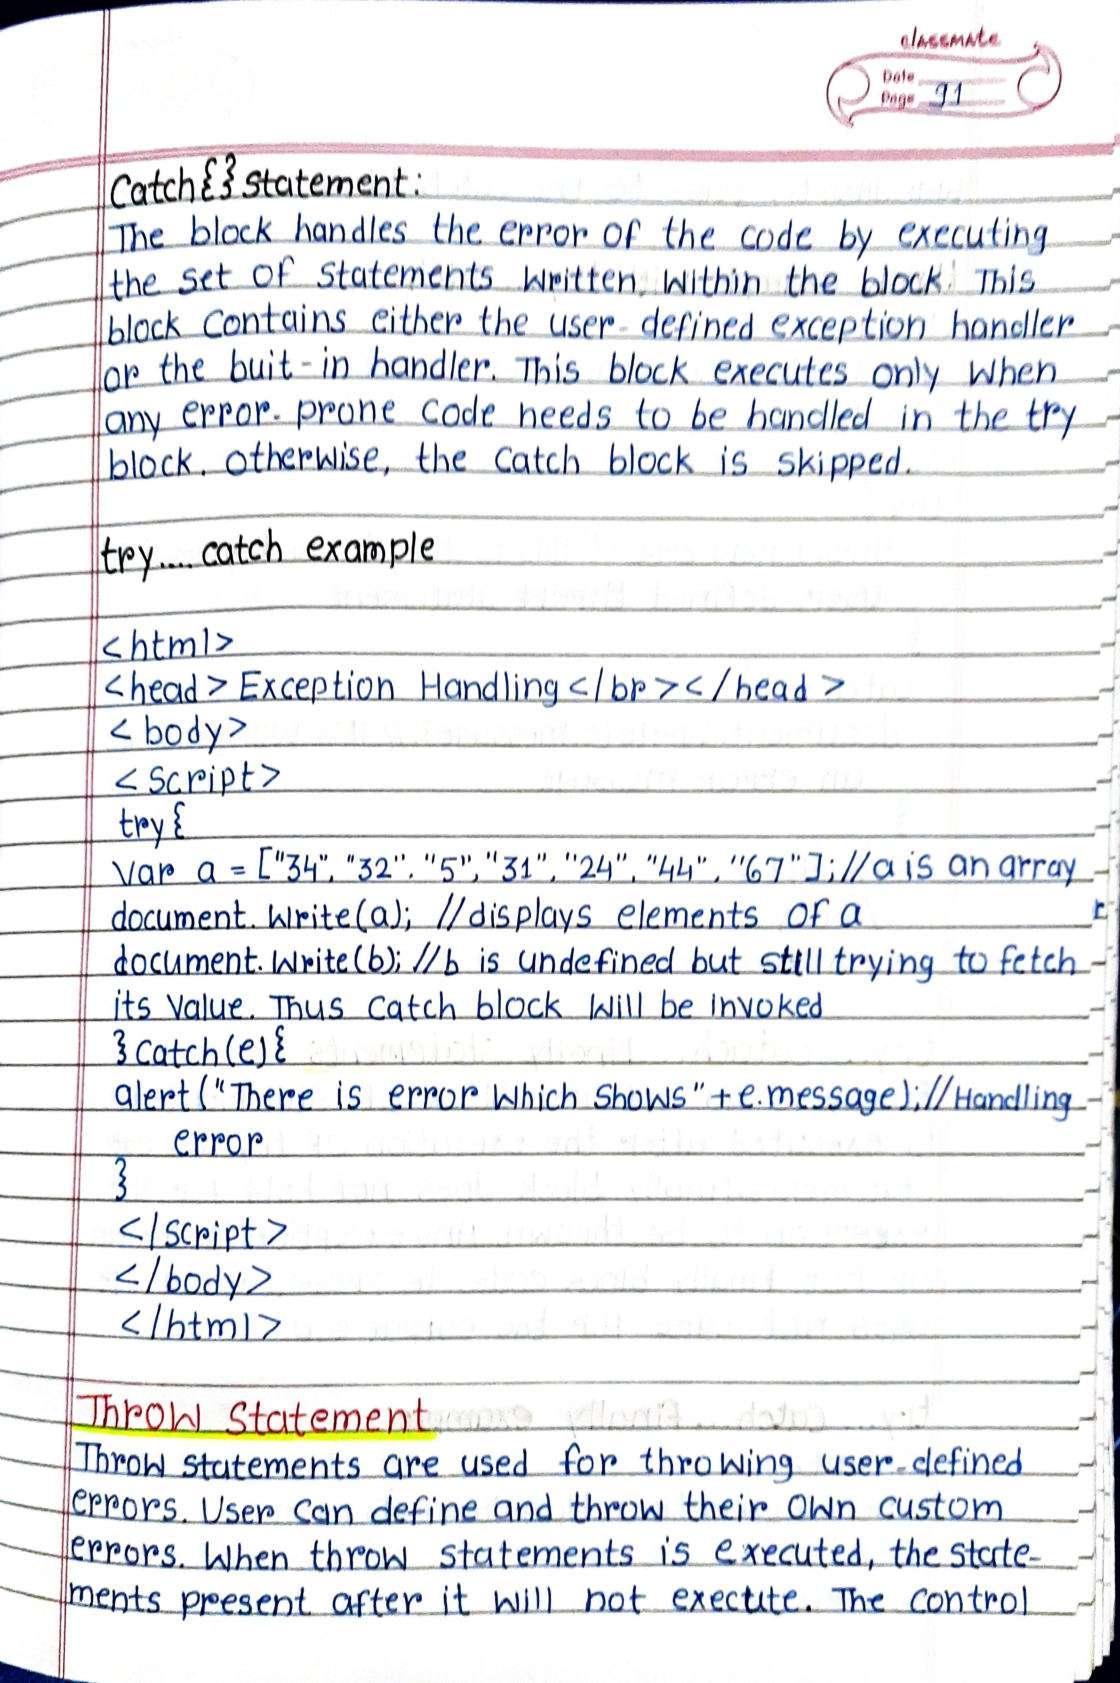 classmate
Date
Page 91
Catch{} statement:
The block handles the error of the code by executing
the set of statements written within the block. This
block contains either the user-defined exception handler
or the buit-in handler. This block executes only when
any error-prone code needs to be handled in the try
block. otherwise, the catch block is skipped.
try.... catch example
<html>
<head> Exception Handling </br></head>
<body>
<script>
try{
var a = ["34", "32", "5", "31", "24", "44", "67"]; //a is an array
document.write(a); //displays elements of a
document.write(b); //b is undefined but still trying to fetch
its value. Thus catch block will be invoked
}catch(e){
alert("There is error which shows"+e.message); //Handling
error
}
</script>
</body>
</html>
Throw Statement
Throw statements are used for throwing user-defined
errors. User can define and throw their own custom
errors. When throw statements is executed, the state-
ments present after it will not execute. The control